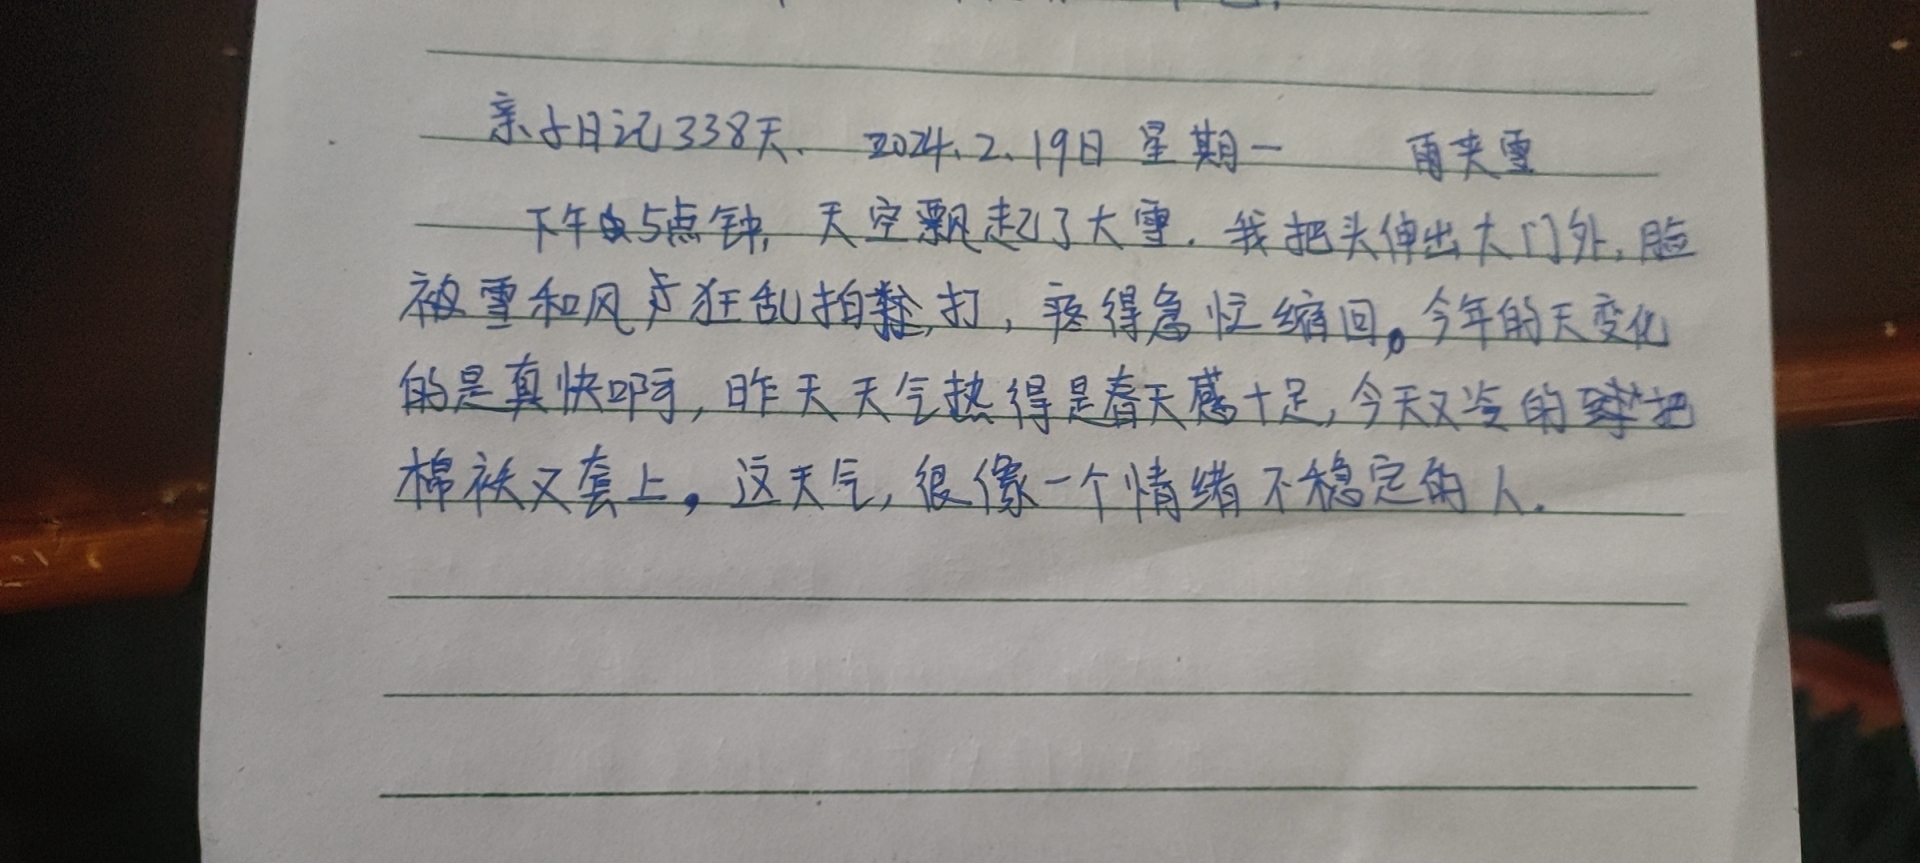 亲子日记338天. 2024.2.19日 星期一 雨夹雪
下午5点钟, 天空飘起了大雪. 我把头伸出大门外, 脸
被雪和风声狂乱拍打, 疼得急忙缩回。今年的天变化
的是真快啊, 昨天天气热得是春天感十足, 今天又冷的把
棉袄又套上。这天气, 很像一个情绪不稳定的人.